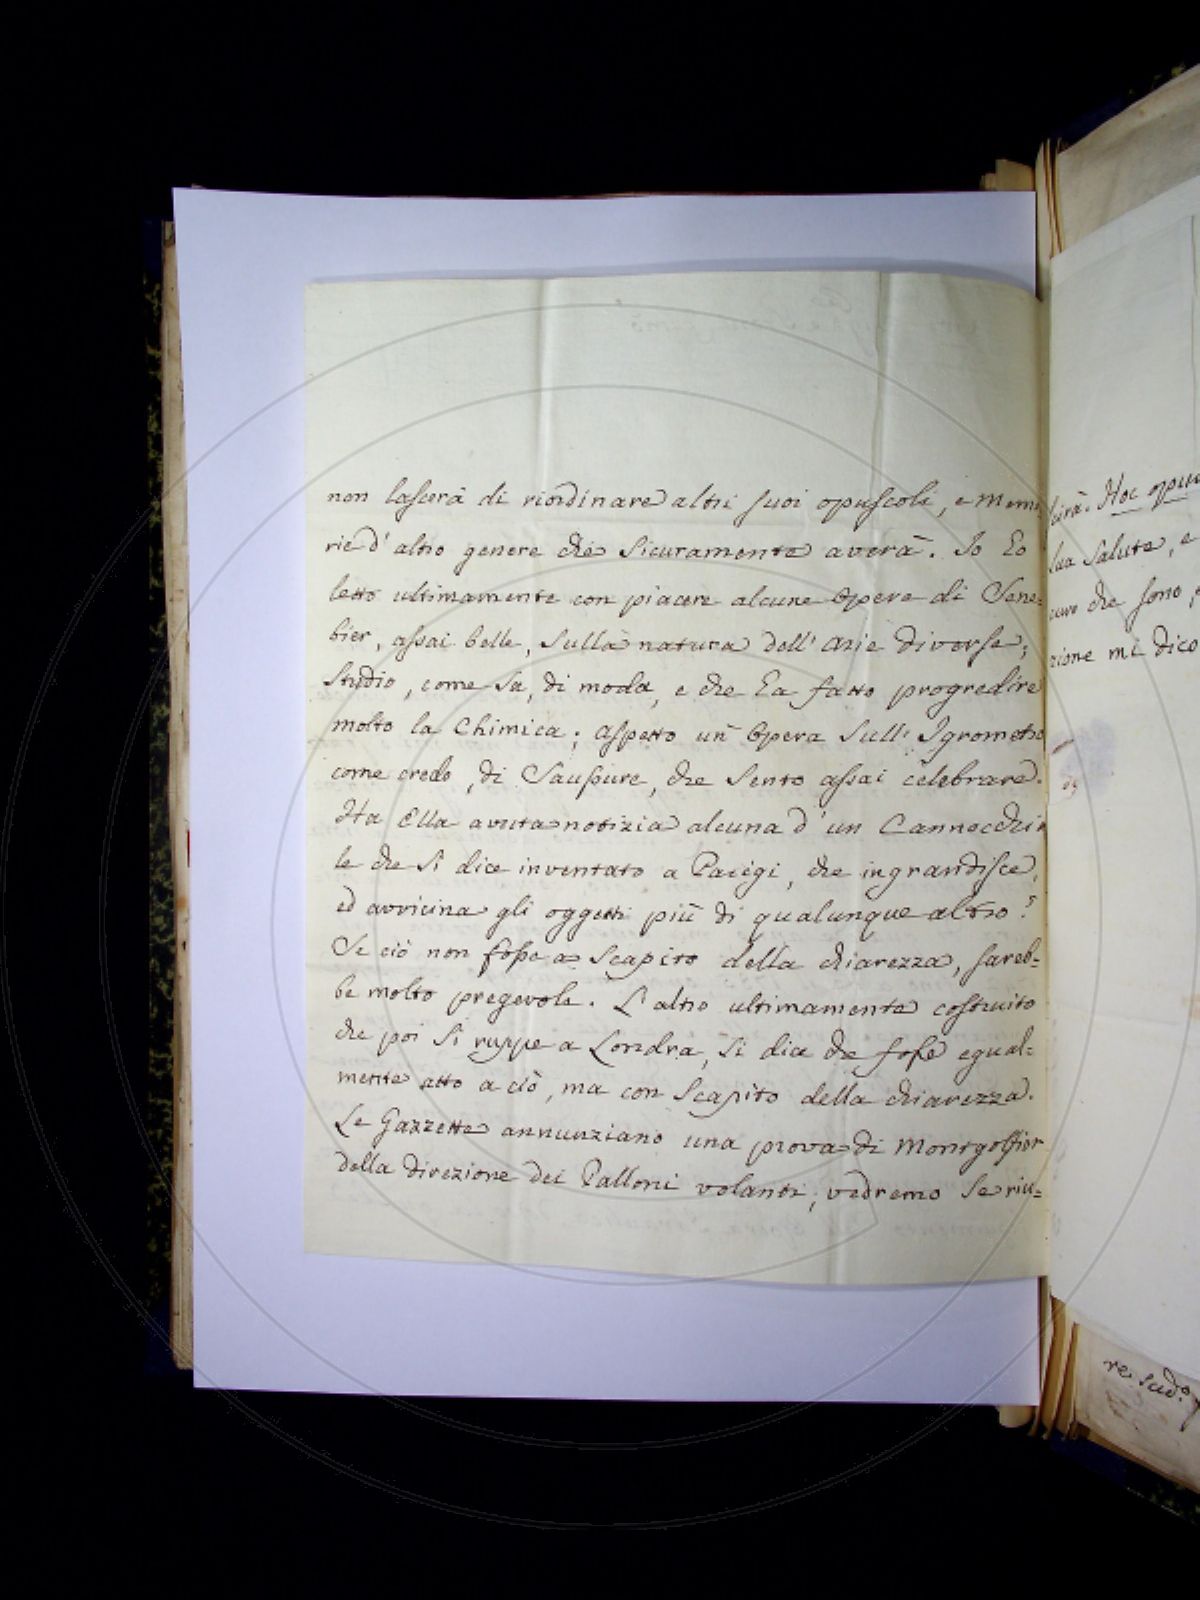 non lascerà di riordinare altri suoi opuscoli, e Memo
rie d' altro genere che sicuramente averà. Io ho
letto ultimamente con piacere alcune Opere di Sene=
bier, assai belle, sulla natura dell' Arie diverse;
studio, come sa, di moda, e che ha fatto progredire
molto la Chimica; aspetto un' Opera sull' Igrometro
come credo, di Saussure, che sento assai celebrare.
Ha Ella avuta notizia alcuna d' un Cannocchia
le che si dice inventato a Parigi, che ingrandisce,
ed avvicina gli oggetti più di qualunque altro?
Se ciò non fosse a scapito della chiarezza, sareb=
be molto pregevole. L' altro ultimamente costruito
che poi si ruppe a Londra, si dice che fosse egual=
mente atto a ciò, ma con scapito della chiarezza.
Le Gazzette annunziano una prova di Montgolfier
della direzione dei Palloni volanti; vedremo se riu=
scirà. Hoc opus
sua salute, e
che sono
zione mi dico
re scud.